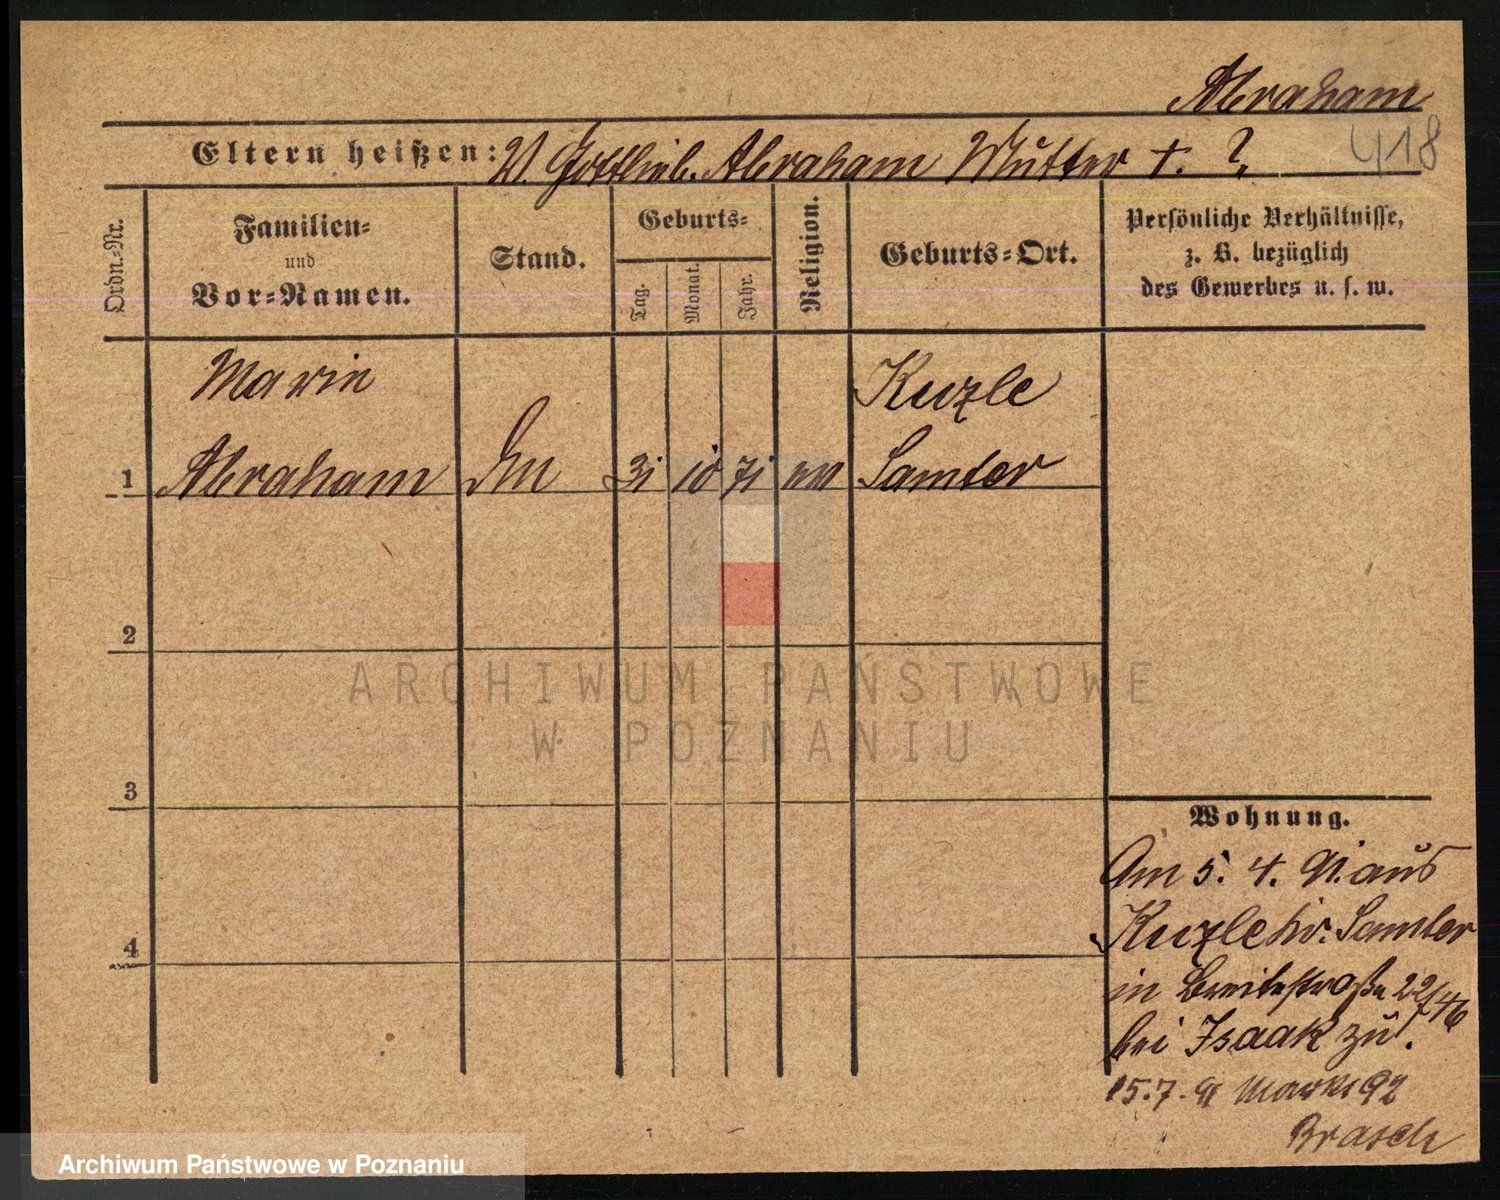 Abraham
418
Eltern heißen: V. Gottlieb Abraham Mutter +. ?
Ordn.-Nr.
Familien-
und
Vor-Namen.
Stand.
Geburts-
Tag.
Monat.
Jahr.
Religion.
Geburts-Ort.
Persönliche Verhältnisse,
z. B. bezüglich
des Gewerbes u. s. w.
Marie Kuzle
1 Abraham 31 10 71 Samter
2
3
4
Wohnung.
Am 5. 4. 91. aus
Kuzle Kr. Samter
in Breitestraße 22/46
bei Isaak zu.
15.7.91 Markt 92
Brasch
ARCHIWUM PAŃSTWOWE
W POZNANIU
Archiwum Państwowe w Poznaniu